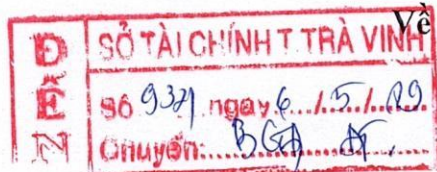 Về
ĐẾN
SỞ TÀI CHÍNH T. TRÀ VINH
Số 9321 ngày 6/5/29
Chuyển: